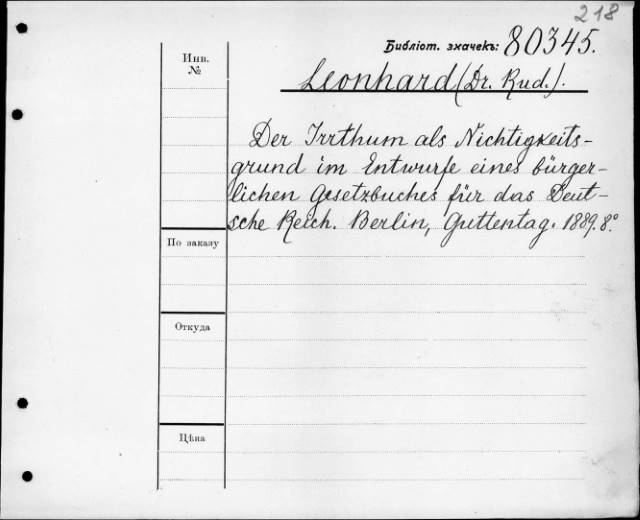 218
Библіот. значекъ: 80345.
Инв.
№
Leonhard (Dr. Rud.).
Der Irrthum als Nichtigkeits-
grund im Entwurfe eines bürger-
lichen Gesetzbuches für das Deut-
sche Reich. Berlin, Guttentag. 1889. 8°.
По заказу
Откуда
Цѣна